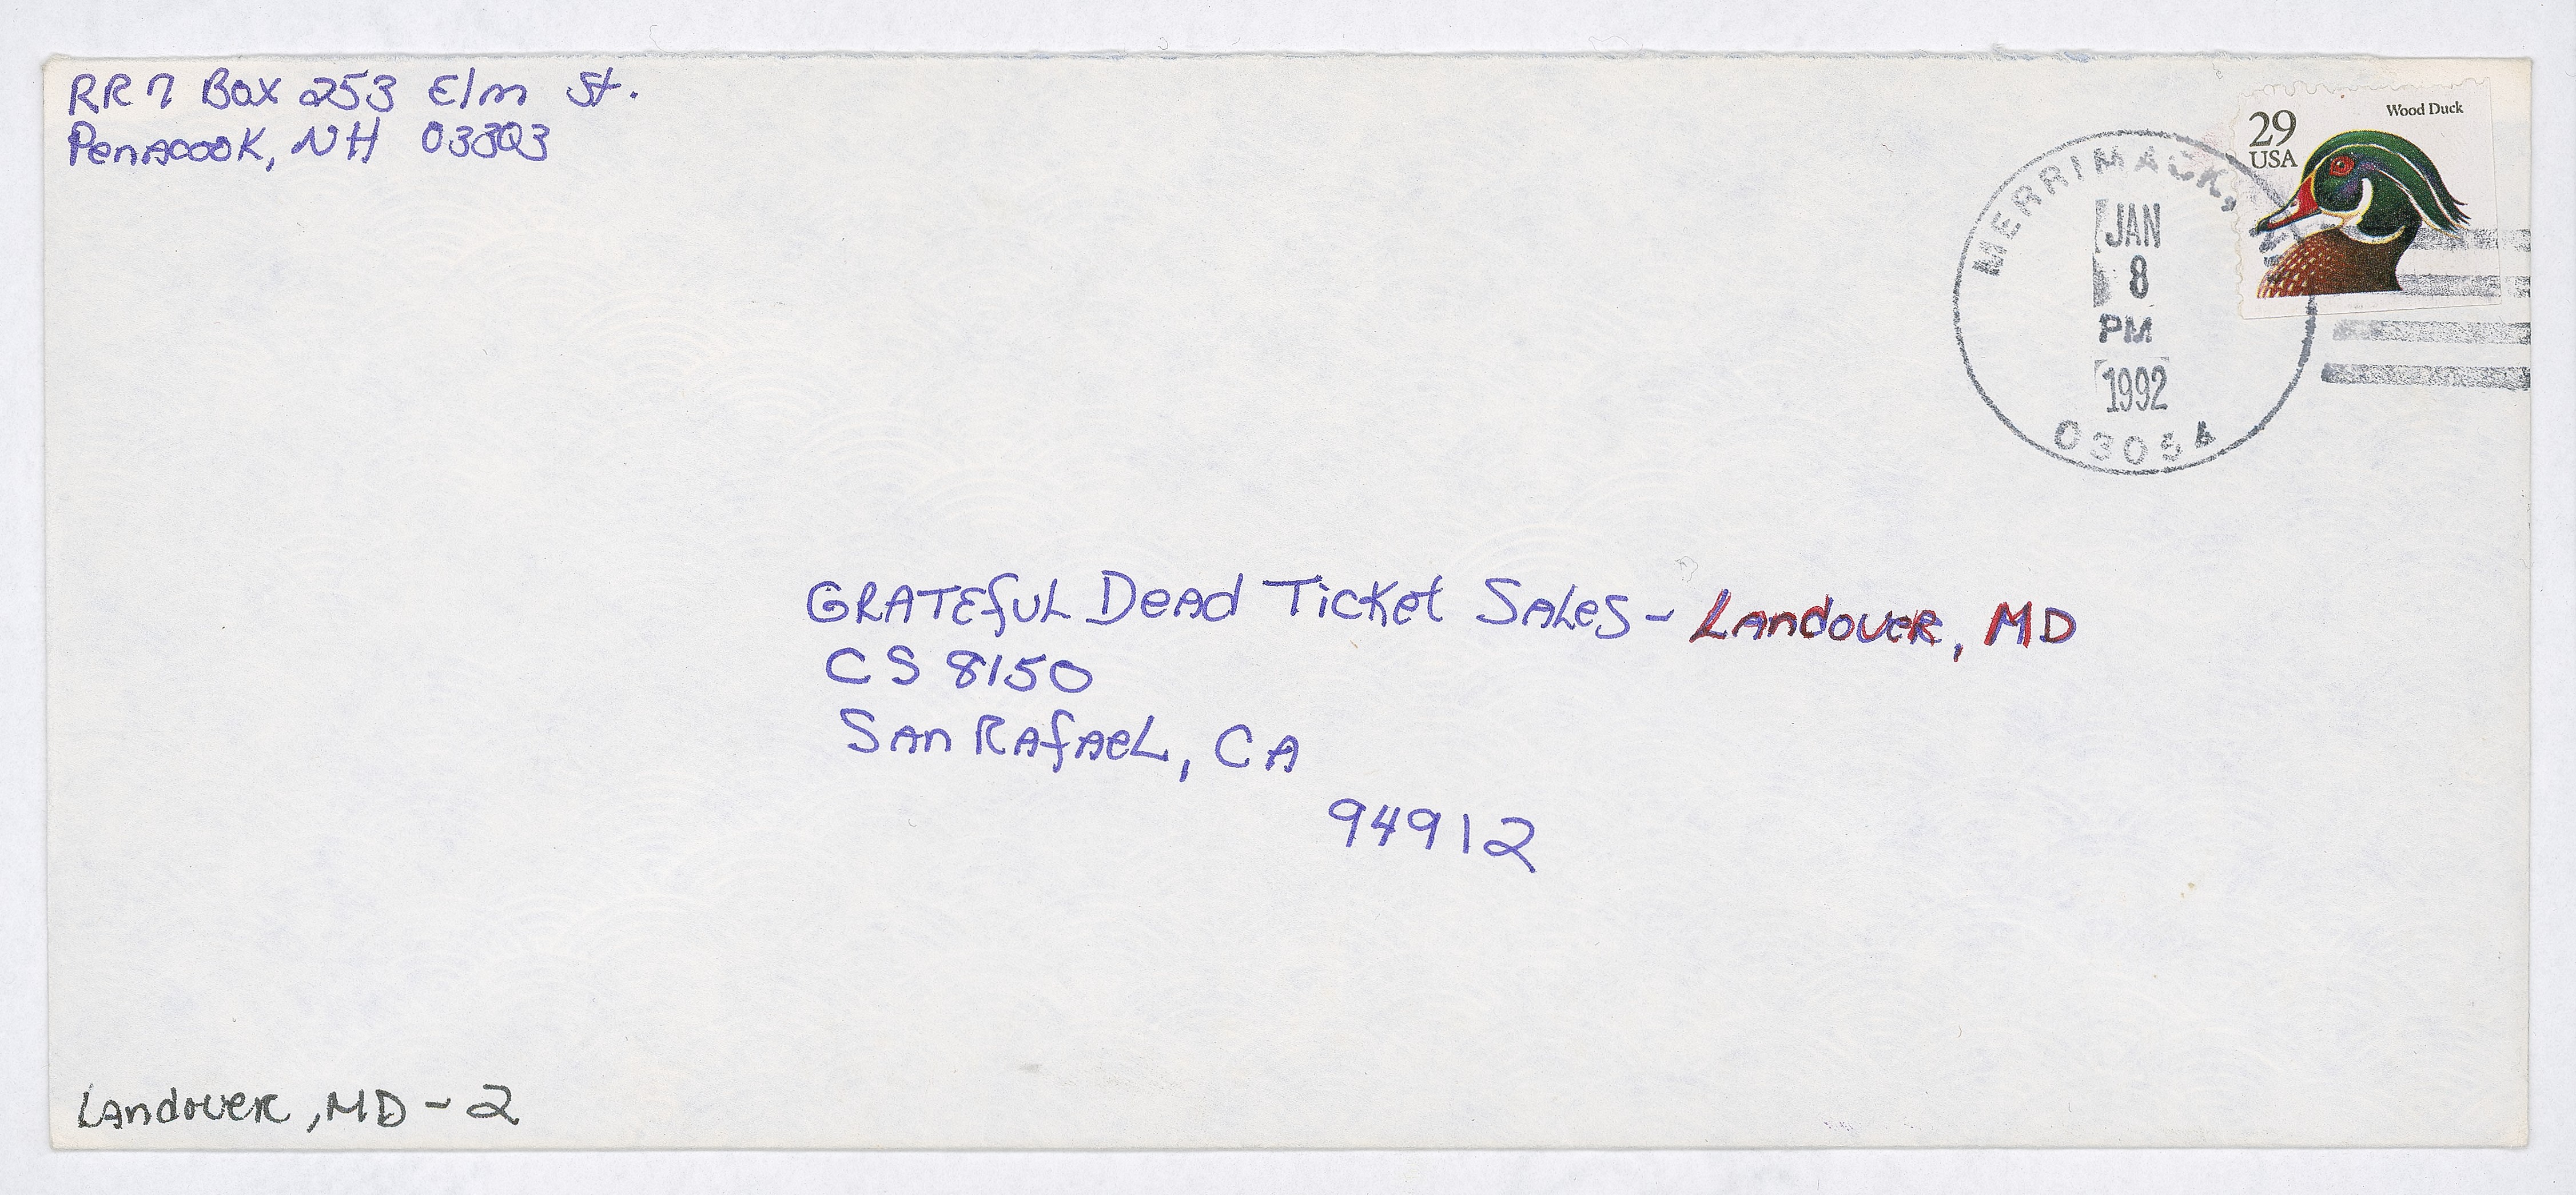 RR7 Box 253 Elm St.
Penacook, NH 03303
Wood Duck
29
USA
MERRIMACK, NH
JAN
8
PM
1992
03054
GRATEfUL Dead Ticket Sales - Landover, MD
CS 8150
San Rafael, CA
94912
Landover, MD - 2